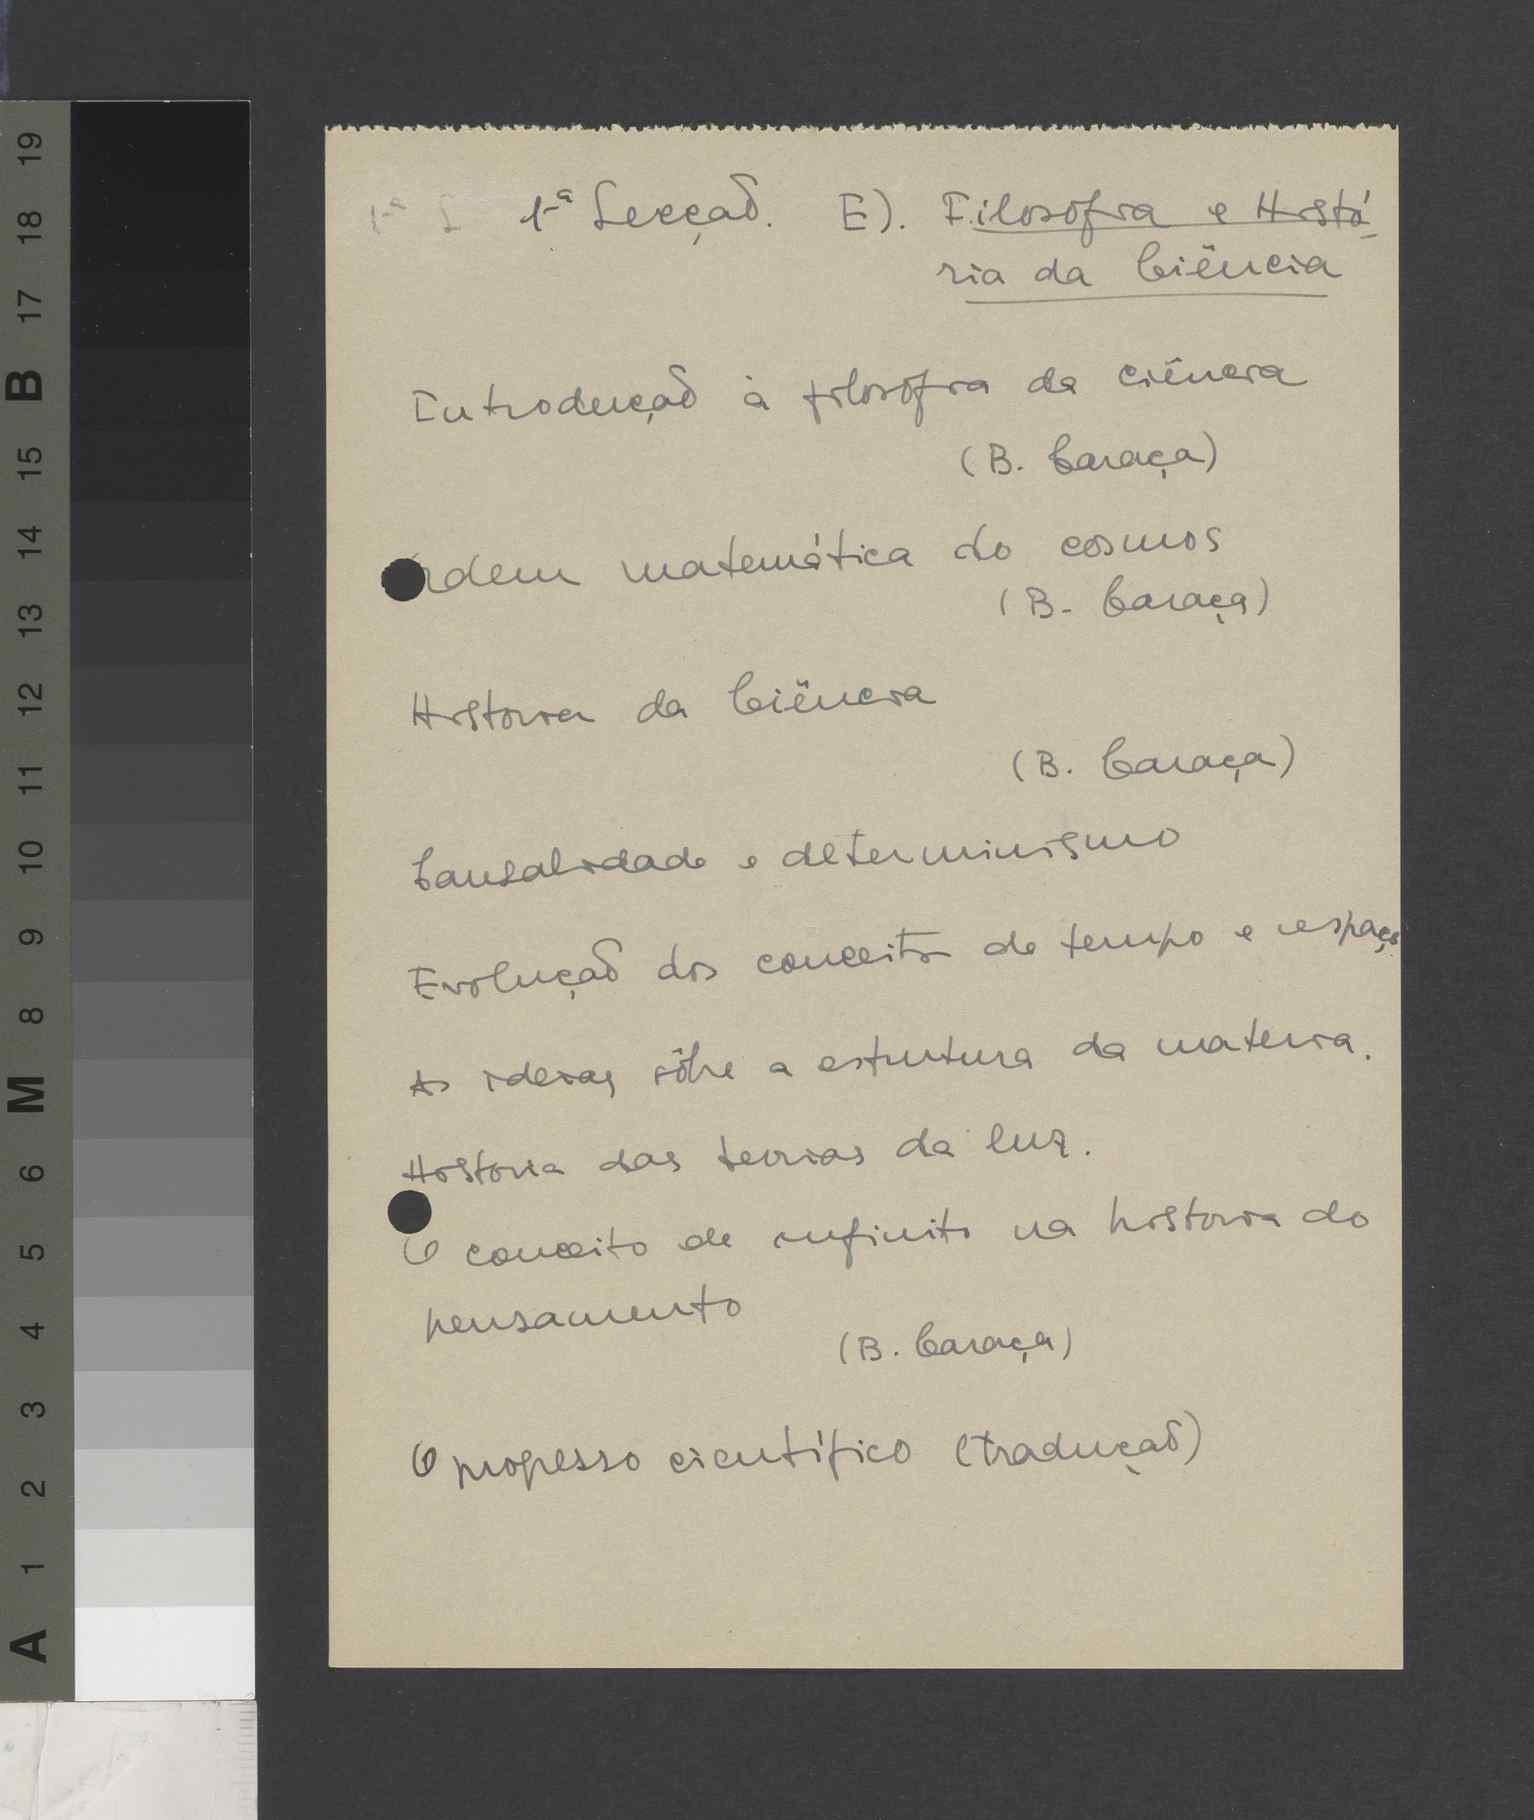 1-ª Secção. E). Filosofia e Histó-
ria da Ciência
Introdução à filosofia da ciência
(B. Caraça)
Ordem matemática do cosmos
(B. Caraça)
Historia da Ciência
(B. Caraça)
Causalidade e determinismo
Evolução dos conceitos de tempo e espaço
As ideias sôbre a estrutura da materia.
Historia das teorias da luz.
O conceito de infinito na historia do
pensamento
(B. Caraça)
O progresso científico (tradução)
19
18
17
B
15
14
13
12
11
10
9
8
M
6
5
4
3
2
1
A